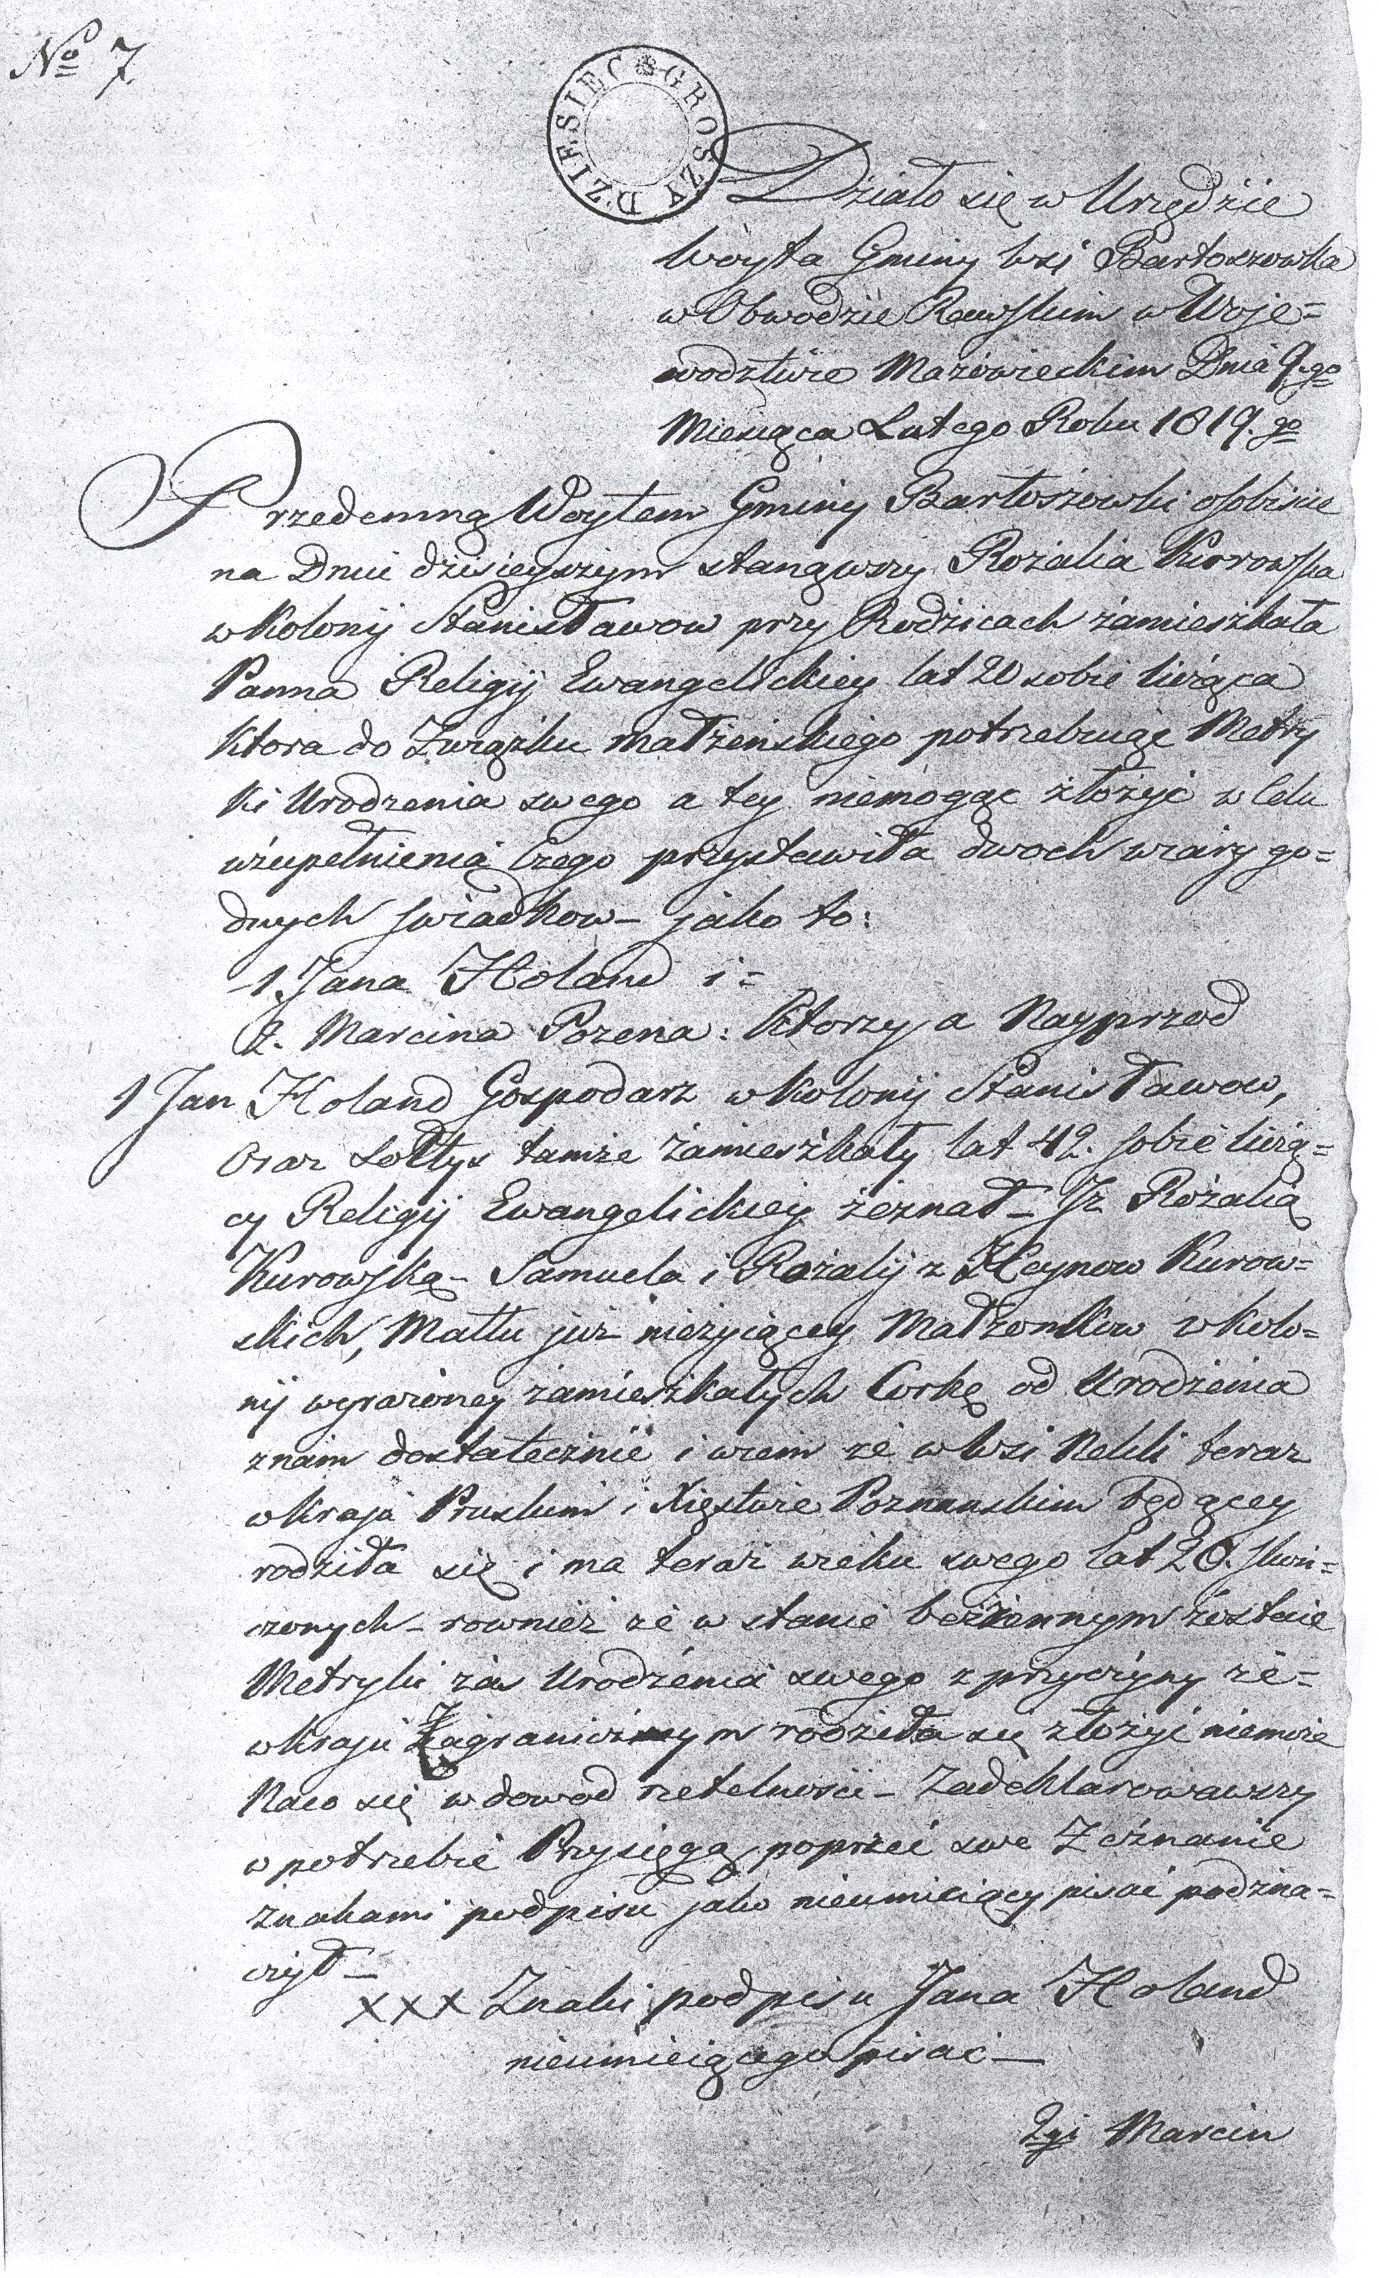 No 7
DZIESIĘC GROSZY
Działo się w Urzędzie
Woyta Gminy Wsi Bartoszowka
w Obwodzie Rawskim w Woje=
wodztwie Mazowieckim Dnia 9.go
Miesiąca Lutego Roku 1819.go
Przedemną Woytem Gminy Bartoszowki osobiscie
na Dniu dzisieyszym stanąwszy Rozalia Kurowska
w Kolonij Stanisławow przy Rodzicach zamieszkała
Panna Religij Ewangelickiey lat 20 sobie licząca
Ktora do Związku małżenskiego potrzebuiąc Metry
ki Urodzenia swego a tey niemogąc złożyć w Celu
uzupełnienia Czego przystawiła dwoch wiary go=
dnych swiadkow – jako to:
1. Jana Holand i=
2. Marcina Pozena: Ktorzy a Nayprzod
1 Jan Holand Gospodarz w Kolonij Stanisławow,
Oraz Sołtys tamże zamieszkały lat 42. sobie liczą=
cy Religij Ewangelickiey zeznał – Jż Rozalią
Kurowską – Samuela i Rozalij z Heynow Kurow=
skich, Matki już nieżyiącey Małżonkow w kolo=
nij wyrażoney zamieszkałych Corkę od Urodzenia
znam dostatecznie i wiem że w Wsi Nekli teraz
w kraju Pruskim i Xięstwie Poznanskim będącey
rodziła się i ma teraz wieku swego lat 20. skoń=
czonych – rownież że w stanie bezżennym zostaie
Metryki zas Urodzenia swego z przyczyny że=
w kraju Zagranicznym rodziła się złożyć niemoże
Naco się w dowod rzetelności – Zadeklarowawszy
w potrzebie Przysięgą poprzeć swe Zeznanie
Znakami podpisu jako nieumieiący pisać podzna=
czył –
xxx Znaki podpisu Jana Holand
nieumieiącego pisac –
2gi Marcin